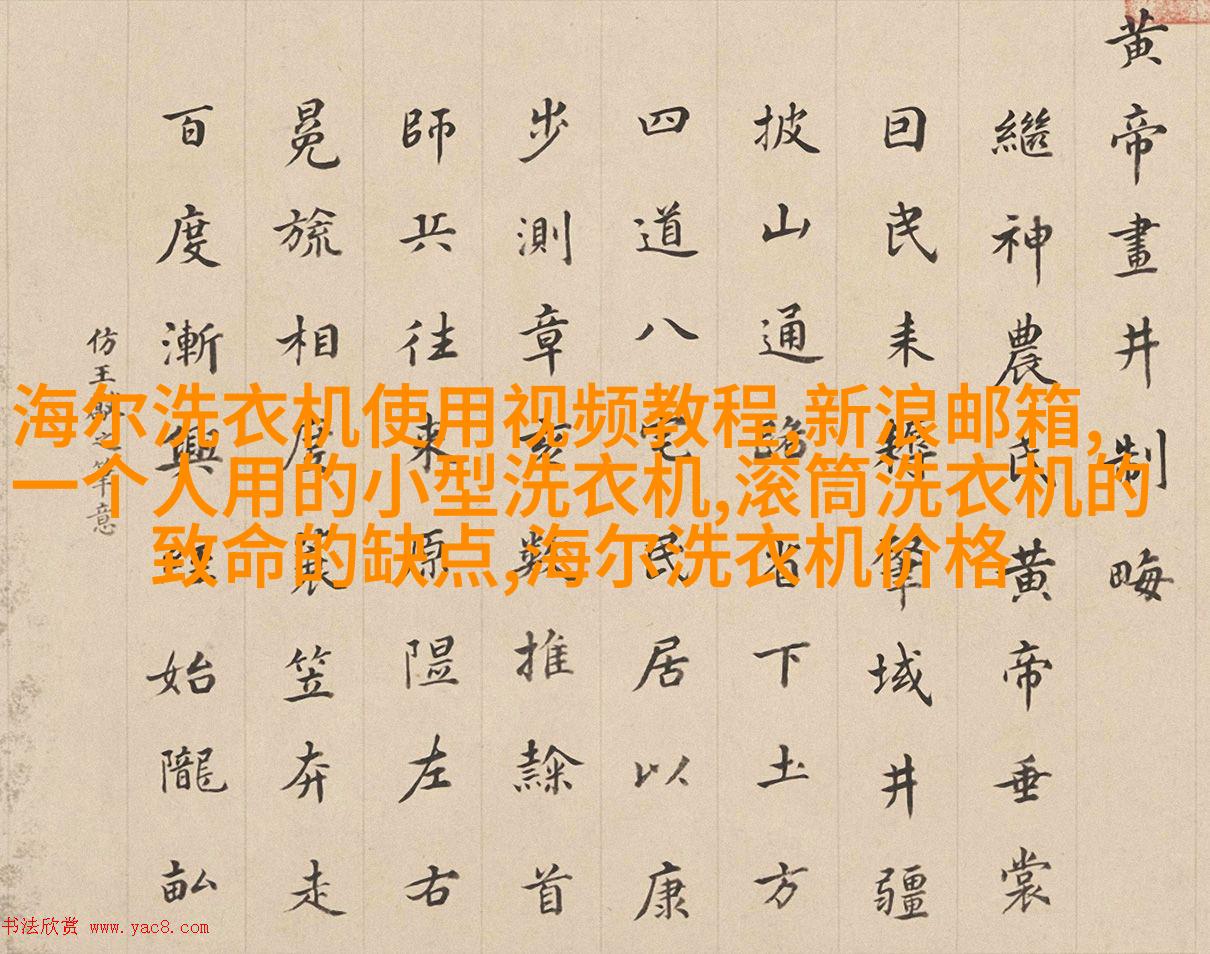 黄帝畫井制畮
繼神農氏黄帝垂裳
囙民耒耨肇域井疆
披山通路省下土方
四道八宅民居以康
步測章亥數推隸首
師兵往來原隰左右
冕旒相度蓑笠奔走
百度漸興始隴畝
仿王之筆意
海尔洗衣机使用视频教程,新浪邮箱,
一个人用的小型洗衣机,滚筒洗衣机的
致命的缺点,海尔洗衣机价格
书法欣赏 www.yac8.com